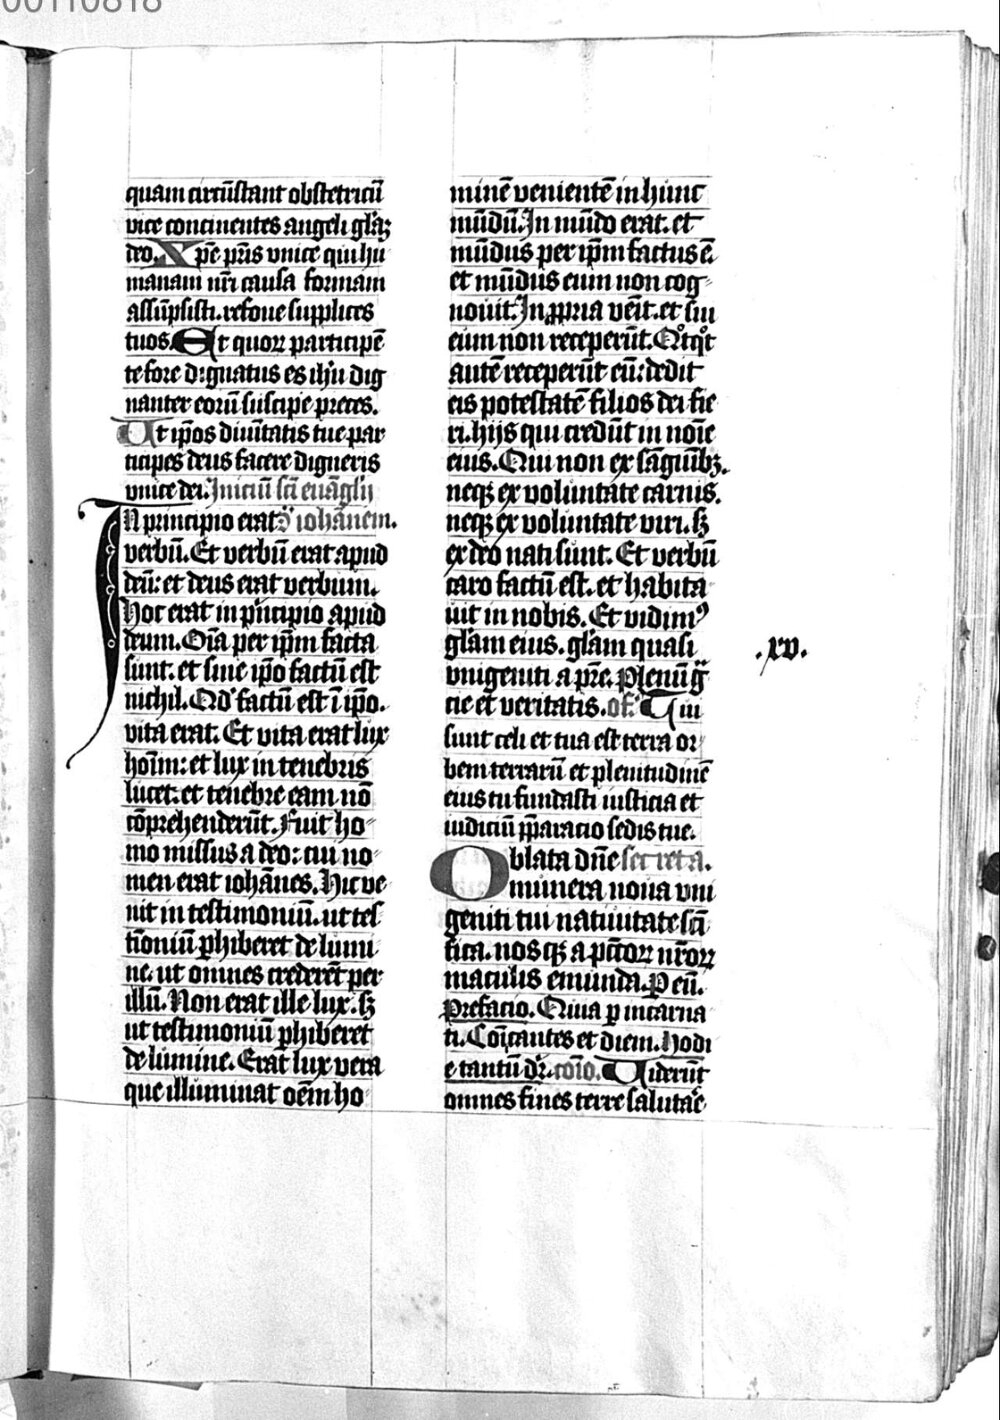 00110818
quam circūstant obstetricū
vice concinentes angeli glāȝ
deo. Xpē pr̄is vnice qui hu
manam nr̄i causa formam
assūpsisti. refove supplices
tuos. Et quoꝝ participē
te fore dignatus es ih̄u dig
nanter eorū suscipe preces.
Ut ip̄os diuīitatis tue par
ticipes deus facere digneris
vnice dei. Iniciū sc̄i euāgl̄ij
IN principio erat s̄ iohānem.
verbū. Et verbū erat apud
deū: et deus erat verbum.
Hoc erat in pͥncipio apud
deum. Oīa per ip̄m facta
sunt: et sine ip̄o factū est
nichil. Qd̓ factū est ī ip̄o.
vita erat: Et vita erat lux
hoīm: et lux in tenebris
lucet: et tenebre eam nō
cōprehenderūt. Fuit ho-
mo missus a deo: cui no-
men erat iohānes. Hic ve
nit in testimoniū. ut tes
tīoniū ꝓhiberet de lumi
ne. ut omnes crederēt per
illū. Non erat ille lux. sꝫ
ut testimoniū ꝓhiberet
de lumine. Erat lux vera
que illuminat oēm ho
minē venientē in hunc
mūdū. In mūdo erat. et
mūdus per ip̄m factus ē
et mūdus eum non cog-
nouit. In ꝓpria vēit. et sui
eum non receperūt. Qͦtqͦt
autē receperūt eū: dedit
eis potestatē filios dei fie
ri. hijs qui credūt in noīe
eius. Qui non ex sāguībꝫ.
neqꝫ ex voluntate carnis.
neqꝫ ex voluntate viri. sꝫ
ex deo nati sunt. Et verbū
caro factū est. et habita
uit in nobis. Et vidimꝰ
glām eius. glām quasi
vnigeniti a pr̄e. Plenū gͣ
cie et veritatis. of. Tui
.xv.
sunt celi et tua est terra or
bem terrarū et plenitudinē
eius tu fundasti iusticia et
iudiciū p̄paracio sedis tue.
Oblata dn̄e secreta.
munera noua vni
geniti tui natiuitate sc̄i
fica. nosqꝫ a pct̄oꝝ nr̄oꝝ
maculis emunda. P eū.
Prefacio. Quia ꝑ incarna
ti. Cōīcantes et diem. Hodi
e tantū dr̄. cōīo. Uiderūt
omnes fines terre salutāe